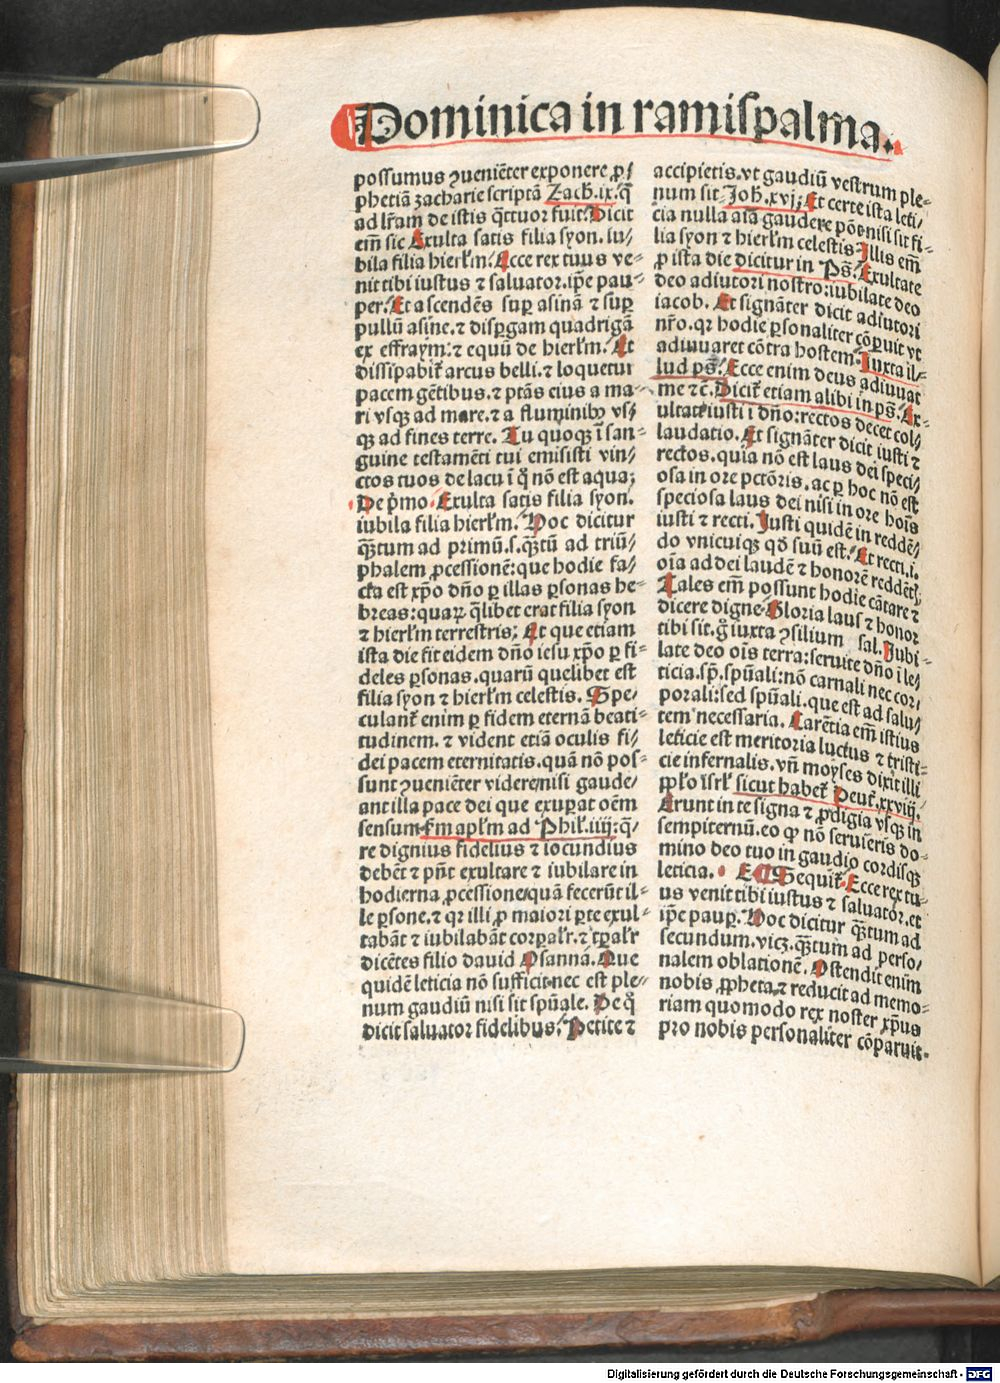 Dominica in ramispalma.
possumus ꝯueniēter exponere ꝓ/
phetiā zacharie scriptā Zach. ix. q̄
ad lr̄am de istis q̄ttuor fuit. Dicit
em̄ sic Exulta satis filia syon. iu/
bila filia hierlꝫm. Ecce rex tuus ve⸗
nit tibi iustus ⁊ saluator. ip̄e pau⸗
per. Et ascendēs suꝑ asinā ⁊ suꝑ
pullū asine. ⁊ disꝑgam quadrigā
ex effraym: ⁊ equū de hierl'm. Et
dissipabit̄ arcus belli. ⁊ loquetur
pacem gētibus. ⁊ ptās eius a ma⸗
ri vsqꝫ ad mare. ⁊ a fluminibꝰ vs/
qꝫ ad fines terre. Tu quoqꝫ ī san⸗
guine testamēti tui emisisti vin/
ctos tuos de lacu ī q̊ nō est aqua;
De p̄mo. Exulta satis filia syon.
iubila filia hierl'm. Hoc dicitur
qꝫtum ad primū. s. qꝫtū ad triū/
phalem ꝓcessionē: que hodie fa/
cta est xp̄o dn̄o ꝑ illas ꝑsonas he⸗
breas: quaꝝ q̄libet erat filia syon
⁊ hierl'm terrestris; Et que etiam
ista die fit eidem dn̄o iesu xp̄o ꝑ fi⸗
deles ꝑsonas. quarū quelibet est
filia syon ⁊ hierl'm celestis. Spe/
culant̄ enim ꝑ fidem eternā beati⸗
tudinem. ⁊ vident etiā oculis fi/
dei pacem eternitatis. quā nō pos⸗
sunt ꝯueniēter videre nisi gaude/
ant illa pace dei que exuꝑat oēm
sensum fm apl'm ad Phil'. iiij: q̄/
re dignius fidelius ⁊ iocundius
debēt ⁊ pn̄t exultare ⁊ iubilare in
hodierna ꝓcessione quā fecerūt il⸗
le ꝑsone. ⁊ qꝛ illi ꝓ maiori ꝑte exul⸗
tabāt ⁊ iubilabāt corꝑal'r. ⁊ tꝑal'r
dicētes filio dauid Osannā. Que
quidē leticia nō sufficit nec est ple⸗
num gaudiū nisi sit spūale. De q̊
dicit saluator fidelibus. Petite ⁊
accipietis. vt gaudiū vestrum ple⸗
num sit. Joh. xvj; Et certe ista leti/
cia nulla aīa gaudere pōt nisi sit fi⸗
lia syon ⁊ hierl'm celestis. Illis em̄
ꝓ ista die dicitur in Ps̄. Exultate
deo adiutori nostro: iubilate deo
iacob. Et signāter dicit adiutori
nr̄o. qꝛ hodie ꝑsonaliter cōꝑuit vt
adiuuaret cōtra hostem. Iuxta il⸗
lud ps̄. Ecce enim deus adiuuat
me ⁊c̄. Dicit̄ etiam alibi in ps̄. Ex⸗
ultate iusti ī dn̄o: rectos decet col/
laudatio. Et signāter dicit iusti ⁊
rectos. quia nō est laus dei speci/
osa in ore pctōris. ac ꝑ hoc nō est
speciosa laus dei nisi in ore hoīs
iusti ⁊ recti. Justi quidē in reddē/
do vnicuiqꝫ qd̄ suū est. Et recti. i.
oīa ad dei laudē ⁊ honorē reddēt;
Tales em̄ possunt hodie cātare ⁊
dicere digne. Gloria laus ⁊ honor
tibi sit. g̊ iuxta ꝯsilium sal. Jubi⸗
late deo oīs terra: seruite dn̄o ī le/
ticia. sp̄. spūali: nō carnali nec cor/
porali: sed spūali. que est ad salu/
tem necessaria. Carētia em̄ istius
leticie est meritoria luctus ⁊ tristi⸗
cie infernalis. vn̄ moyses dixit illi
ppl'o isrl' sicut habet̄ Deut̄. xxviij.
Erunt in te signa ⁊ ꝓdigia vsqꝫ in
sempiternū. eo ꝙ nō seruieris do⸗
mino deo tuo in gaudio cordisqꝫ
leticia. E Sequit̄. Ecce rex tu⸗
us venit tibi iustus ⁊ saluator. et
ip̄e pauꝑ. Hoc dicitur qꝫtum ad
secundum. vicꝫ. qꝫtum ad perso/
nalem oblationē. Ostendit enim
nobis ꝓpheta. ⁊ reducit ad memo⸗
riam quomodo rex noster xp̄us
pro nobis personaliter cōparuit.
Digitalisierung gefördert durch die Deutsche Forschungsgemeinschaft - DFG